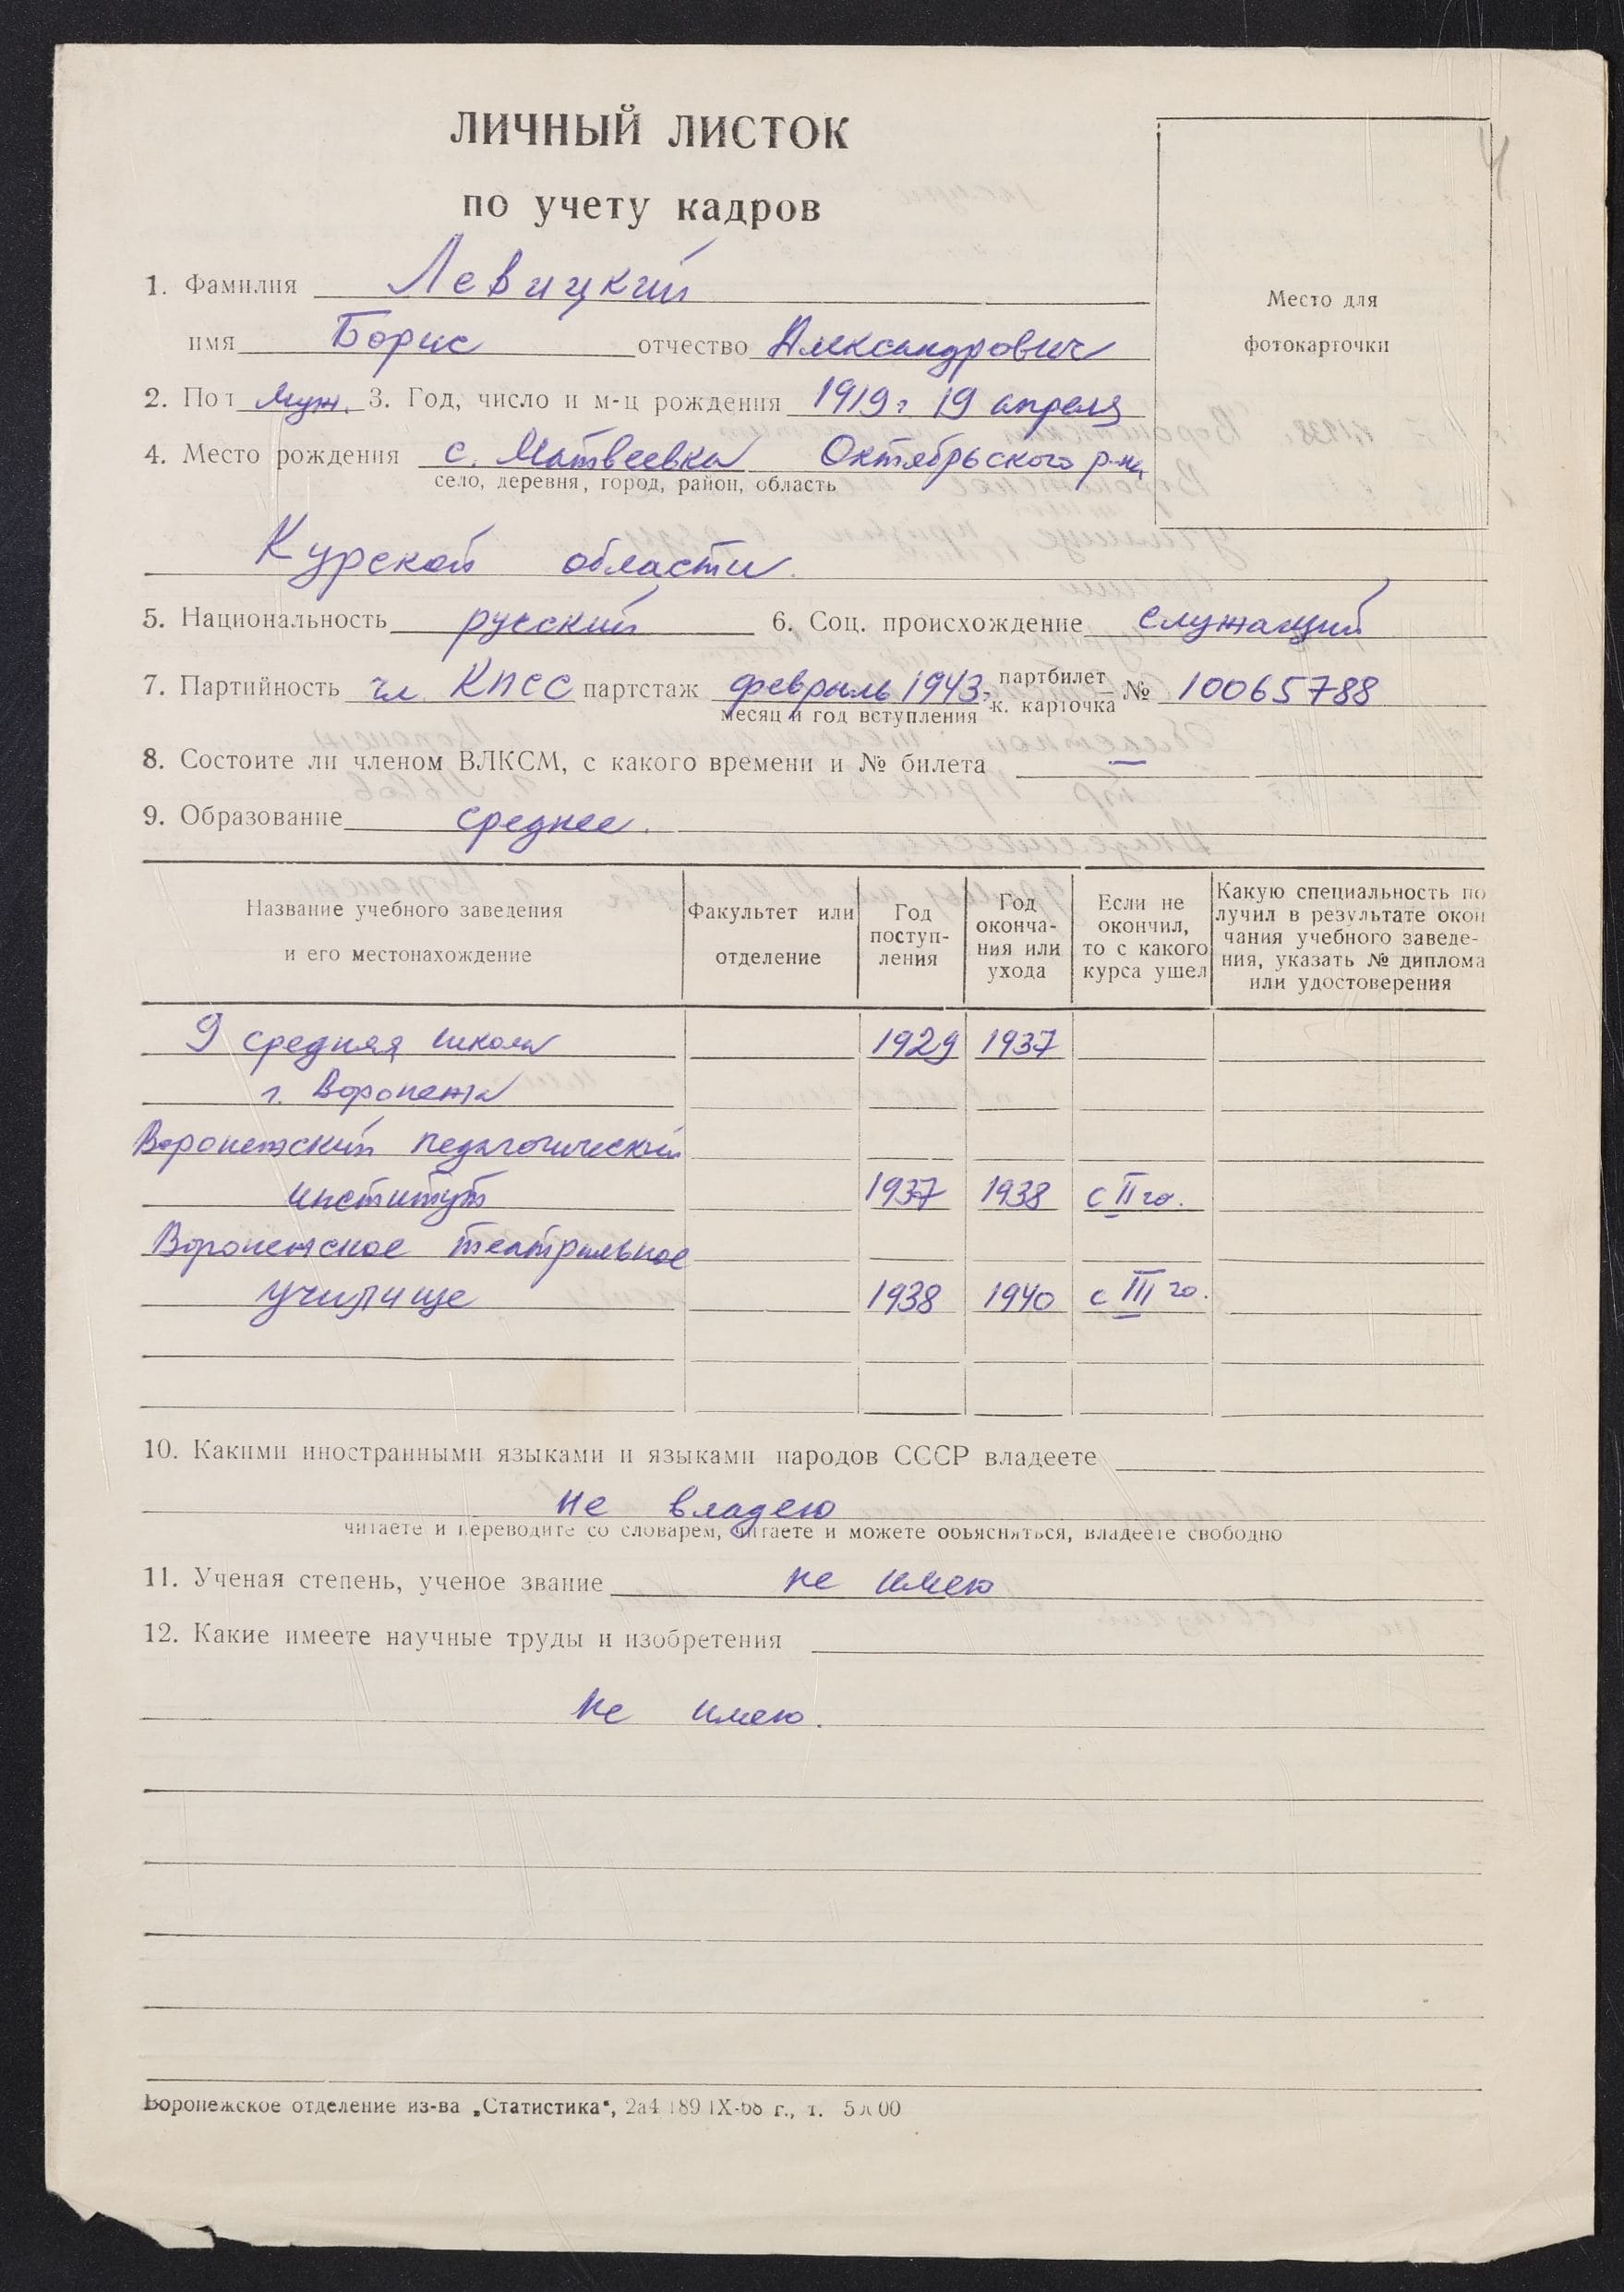 4
ЛИЧНЫЙ ЛИСТОК
по учету кадров
Место для
фотокарточки
1. Фамилия Левицкий
имя Борис отчество Александрович
2. Пол муж. 3. Год, число и м-ц рождения 1919 г 19 апреля
4. Место рождения с. Матвеевка Октябрьского р-на
село, деревня, город, район, область
Курской области.
5. Национальность русский 6. Соц. происхождение служащий
7. Партийность чл. КПСС партстаж февраль 1943. партбилет к. карточка № 10065788
месяц и год вступления
8. Состоите ли членом ВЛКСМ, с какого времени и № билета —
9. Образование среднее.
Название учебного заведения и его местонахождение
Факультет или отделение
Год поступ-ления
Год оконча-ния или ухода
Если не окончил, то с какого курса ушел
Какую специальность по лучил в результате окон чания учебного заведе-ния, указать № диплома или удостоверения
9 средняя школа 1929 1937
г. Воронежа
Воронежский педагогический
институт 1937 1938 с II го.
Воронежское театральное
училище 1938 1940 с III го.
10. Какими иностранными языками и языками народов СССР владеете
не владею
читаете и переводите со словарем, читаете и можете объясняться, владеете свободно
11. Ученая степень, ученое звание не имею
12. Какие имеете научные труды и изобретения
не имею.
Воронежское отделение из-ва „Статистика“, 2а4 189 IX-68 г., т.